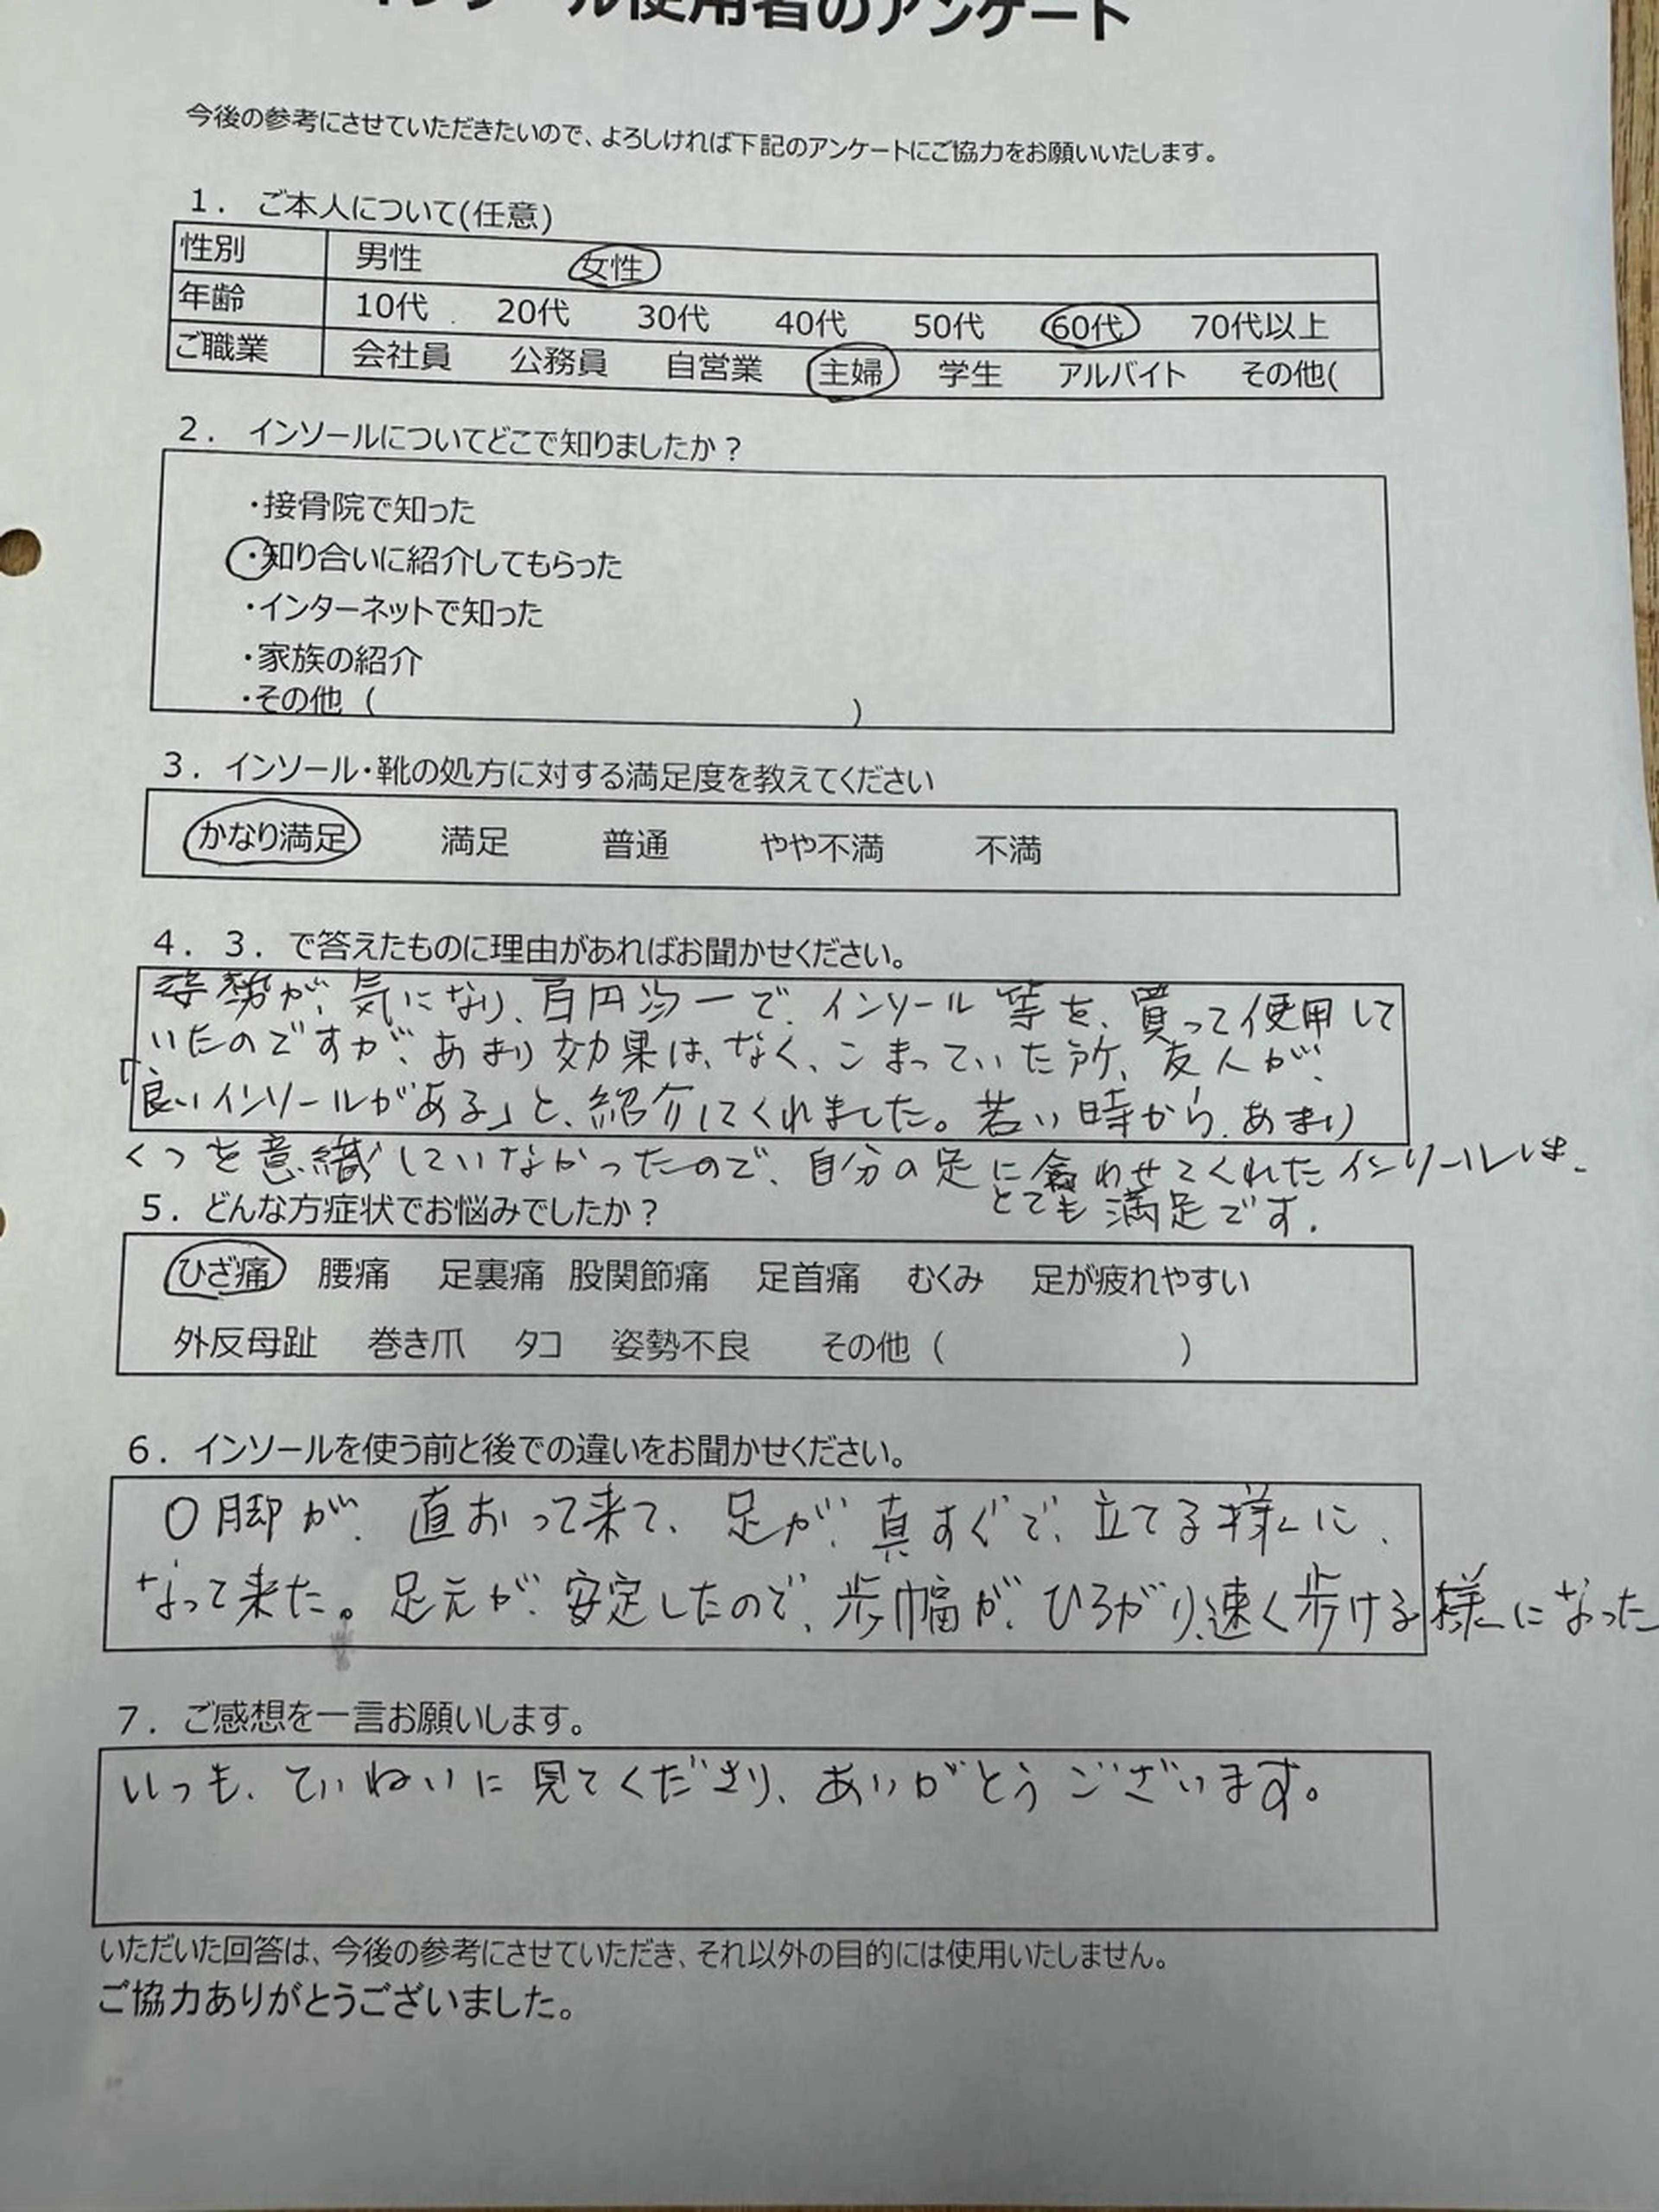 インソール使用者のアンケート
今後の参考にさせていただきたいので、よろしければ下記のアンケートにご協力をお願いいたします。
1． ご本人について(任意)
性別 男性 女性
年齢 10代 20代 30代 40代 50代 60代 70代以上
ご職業 会社員 公務員 自営業 主婦 学生 アルバイト その他(
2． インソールについてどこで知りましたか？
・接骨院で知った
・知り合いに紹介してもらった
・インターネットで知った
・家族の紹介
・その他（ ）
3．インソール・靴の処方に対する満足度を教えてください
かなり満足 満足 普通 やや不満 不満
4．3．で答えたものに理由があればお聞かせください。
姿勢が、気になり、百円均一で、インソール等を、買って使用して
いたのですが、あまり効果は、なく、こまっていた所、友人が、
「良いインソールがある」と、紹介してくれました。若い時から、あまり
くつを意識していなかったので、自分の足に合わせてくれたインソールは、
とても満足です.
5．どんな方症状でお悩みでしたか？
ひざ痛 腰痛 足裏痛 股関節痛 足首痛 むくみ 足が疲れやすい
外反母趾 巻き爪 タコ 姿勢不良 その他（ ）
6．インソールを使う前と後での違いをお聞かせください。
O脚が、直おって来て、足が、真すぐで、立てる様に、
なって来た。足元が、安定したので、歩幅が、ひろがり、速く歩ける様になった
7．ご感想を一言お願いします。
いつも、ていねいに見てくださり、ありがとうございます。
いただいた回答は、今後の参考にさせていただき、それ以外の目的には使用いたしません。
ご協力ありがとうございました。